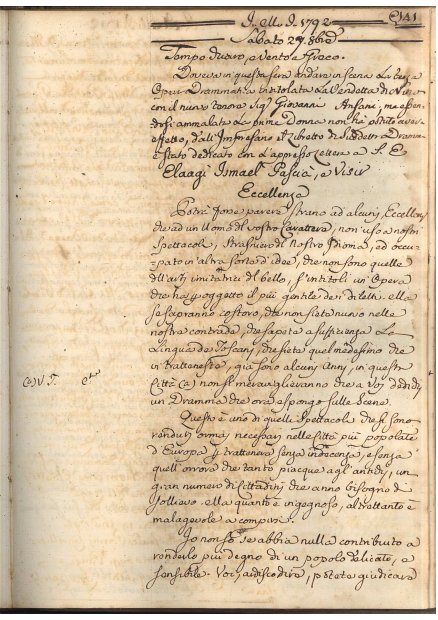 I. M. I. 1792
141
Sabato 29. 8bre
Tempo duaro, e vento Greco.
Doveva in questa sera andare in scena La terza
Opera Drammatica intitolata La Vendetta di Nino
con il nuovo tenore Sigr. Giovanni Ansani, ma essen-
dosi ammalata La prima Donna non ha potuto aver
effetto, dall'Impresario il Libretto di suddetto Dramma
è stato dedicato con l'appresso Lettera a S. E.
Elaagi Ismael Pascià, e Visir
Eccellenza
Potrà forse parere strano ad alcuni, Eccellenza
che ad un Uomo del vostro Carattere, non uso a nostri
Spettacoli, straniero di nostro Idioma, ed occu-
pato in altra sorta d'idee, che non sono quelle
dell'arti imitatrici del bello, s'intitoli un'Opera
che ha per oggetto il più gentile dei diletti. Ma
se sapranno costoro, che non siete nuovo nelle
nostre contrade, che sapete a sufficienza La
Lingua de Toscani, che siete quel medesimo che
vi tratteneste, già sono alcuni Anni, in questa
(a) V. T. Città (a) non si meraviglieranno che a Voi dedichi
un Dramma che ora espongo sulle Scene.
Questo è uno di quelli Spettacoli che si sono
renduti ormai necessari nelle Città più popolate
d'Europa per trattenere senza indecenza, e senza
quell'orrore che tanto piacque agl'antichi, un
gran numero di Cittadini che anno bisogno di
sollievo. Ma quanto è ingegnoso, altrettanto è
malagevole a compirsi.
Io non so se abbia nulla contribuito a
renderlo più degno di un popolo delicato, e
sensibile. Voi, ardisco dire, potete giudicare